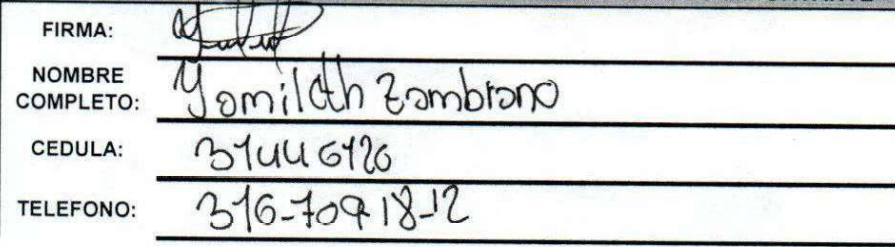 FIRMA:
NOMBRE
COMPLETO: Yamileth Zambrano
CEDULA: 31446126
TELEFONO: 316-709 18-12